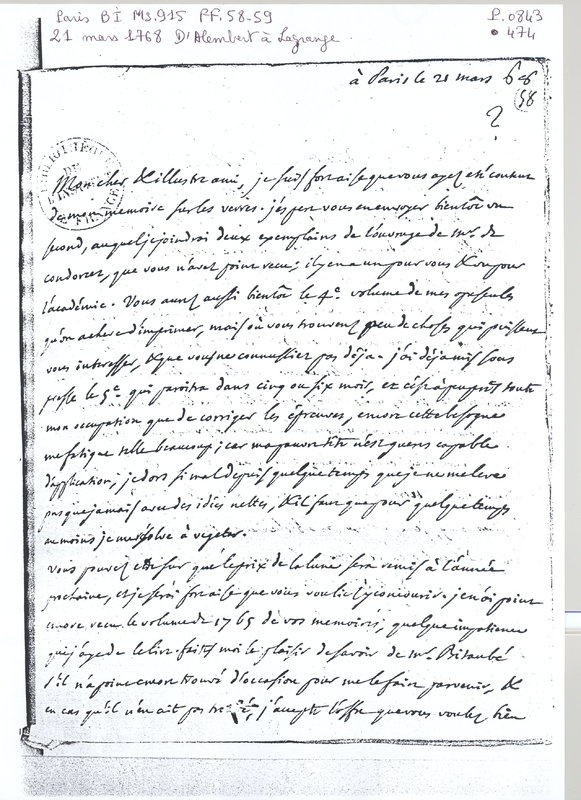 Paris BI Ms. 915 FF. 58-59
21 mars 1768 D'Alembert à Lagrange.
P. 0843
474
à Paris le 21 mars 68
58
?
Mon cher & illustre ami, je suis fort aise que vous ayez eté content
de mon memoire sur les verres. j'espere vous en envoyer bientôt un
second, auquel je joindrai deux exemplaires de l'ouvrage de mr. de
condorcet, que vous n'avez point recu; il y en a un pour vous & un pour
l'académie. Vous aurez aussi bientôt le 4e. volume de mes opuscules
qu'on acheve d'imprimer, mais où vous trouverez peu de choses qui puissent
vous interesser, & que vous ne connussiez pas déja. j'ai déja mis sous
presse le 5e. qui paroitra dans cinq ou six mois, et c'est à peu près toute
mon occupation que de corriger les épreuves, encore cette besogne
me fatigue t'elle beaucoup; car ma pauvre tête n'est gueres capable
d'application; je dors si mal depuis quelque temps que je ne me leve
presque jamais avec des idées nettes, & il faut que pour quelque temps
au moins je me résolve à vegeter.
vous pouvez etre sur que le prix de la lune sera remis à l'année
prochaine, et je serai fort aise que vous vouliez y concourir. je n'ai point
encore recu le volume de 1765 de vos memoires, quelque impatience
que j'aye de le lire. faites moi le plaisir de savoir de mr. Bitaubé
s'il n'a point encore trouvé d'occasion pour me le faire parvenir, &
en cas qu'il n'en ait pas j'accepte l'offre que vous voulez bien